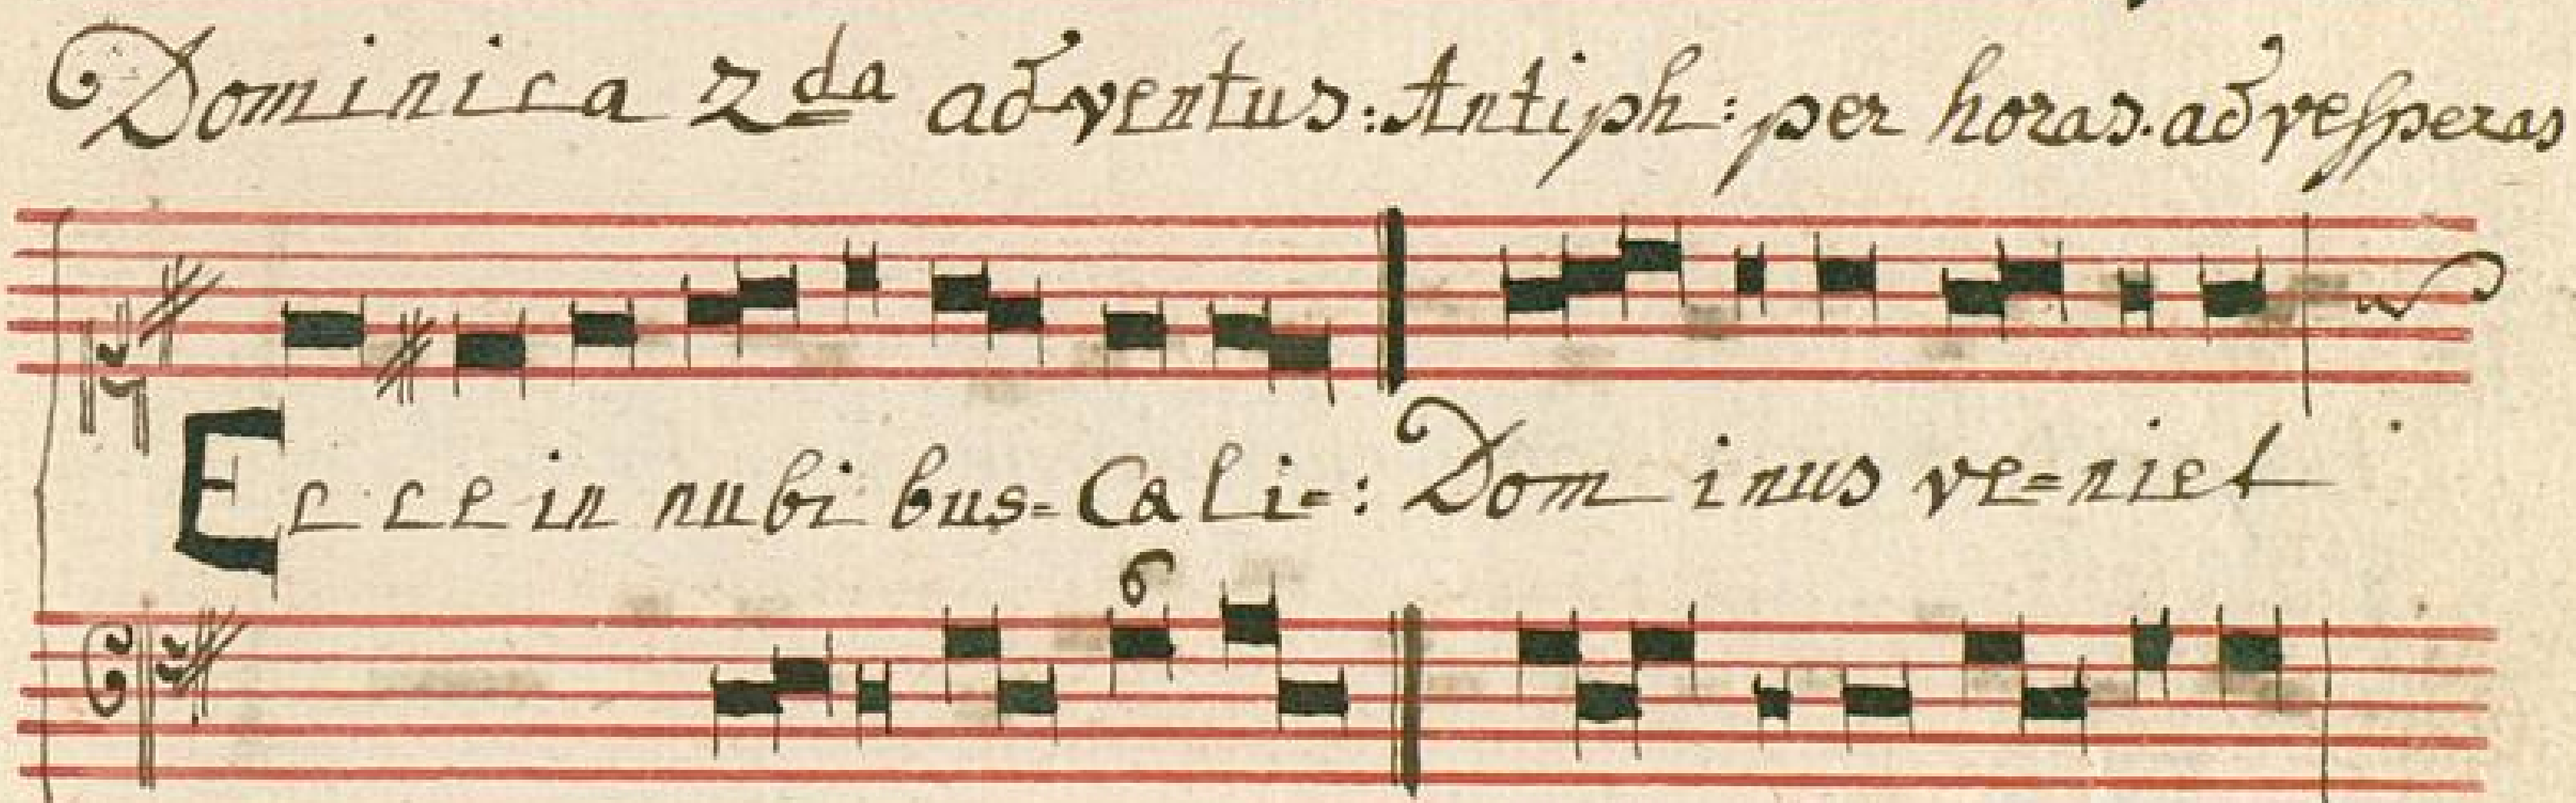 Dominica 2da adventus: Antiph: per horas. ad vesperas
Ecce in nubi bus- Cæli-: Dom inus ve=niet
6